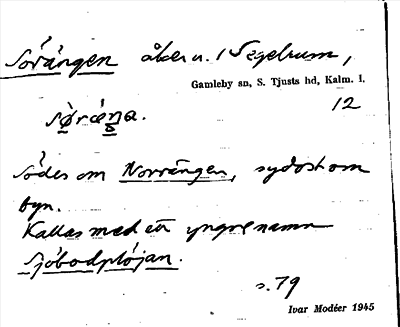 Sörängen åker u. Segelrum,
Gamleby sn, S. Tjusts hd, Kalm. l.
12
sø̀ráŋa.
Söder om Norrängen, sydost om
byn.
Kallas med ett yngre namn
Sjöbodplöjan.
s. 79
Ivar Modéer 1945